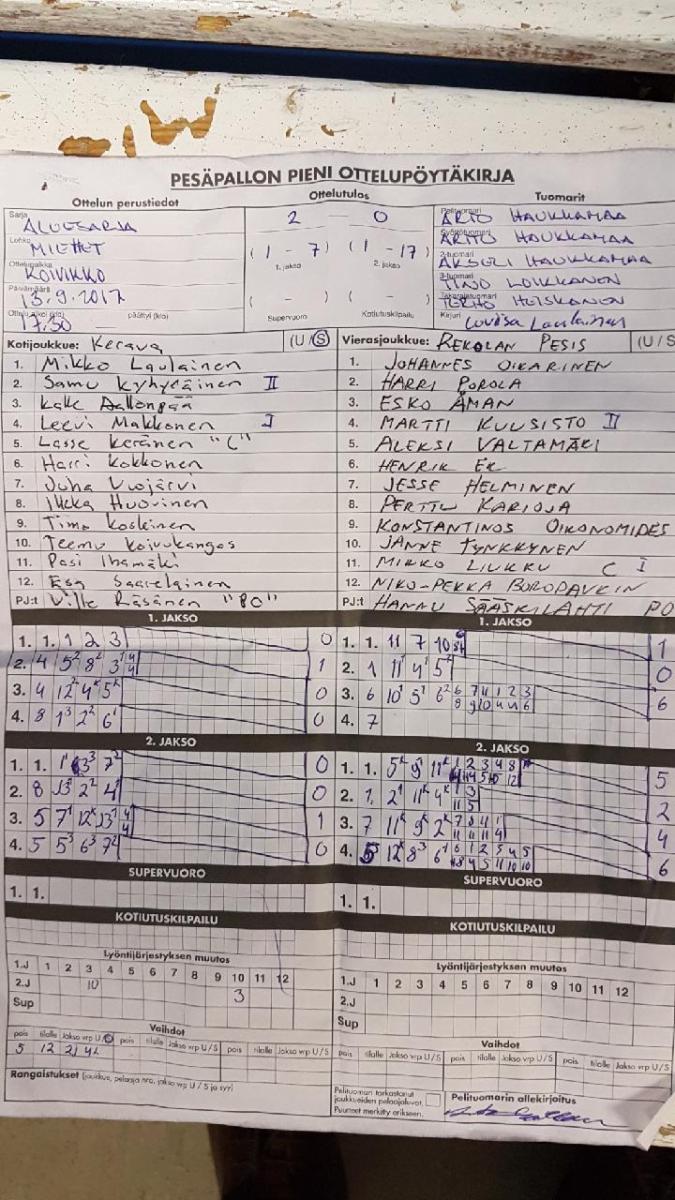 PESÄPALLON PIENI OTTELUPÖYTÄKIRJA
Ottelun perustiedot
Sarja
ALUESARJA
Lohko
MIEHET
Ottelupaikka
KOIVIKKO
Päivämäärä
13.9.2017
17.30 päättyi (klo)
Ottelutulos
2 - 0
(1 - 7) (1 - 17)
1. jakso 2. jakso
( - ) ( - )
Supervuoro Kotiutuskilpailu
Tuomarit
Pelituomari
ARTO HAUKKAMAA
ARTO HAUKKAMAA
2-tuomari
AKSELI HAUKKAMAA
3-tuomari
TINO LOIKKANEN
Takarajatuomari
TERHO HEISKANEN
Kirjuri
Loviisa Laulainen
Kotijoukkue: Kerava (U/S)
1. Mikko Laulainen
2. Samu Kyhyräinen II
3. Kalle Aallonpää
4. Leevi Makkonen I
5. Lasse Keränen "C"
6. Harri Kokkonen
7. Juha Vuojärvi
8. Ilkka Huovinen
9. Timo Koskinen
10. Teemu Koivukangas
11. Pasi Ihamäki
12. Esa Saarelainen
PJ:t Ville Räsänen "PO"
Vierasjoukkue: REKOLAN PESIS (U/S
1. JOHANNES OIKARINEN
2. HARRI POROLA
3. ESKO ÅMAN
4. MARTTI KUUSISTO II
5. ALEKSI VALTAMÄKI
6. HENRIK EK
7. JESSE HELMINEN
8. PERTTU KARIOJA
9. KONSTANTINOS OIKONOMIDES
10. JANNE TYNKKYNEN
11. MIKKO LIUKKU C I
12. NIKO-PEKKA BORODAVKIN
PJ:t HANNU SÄÄSKILAHTI PO
1. JAKSO
1. 1. 1 2 3 0
2. 4 5² 8² 3¹ 4 4 1
3. 4 12² 4ᵏ 5ᵏ 0
4. 8 1³ 2² 6¹ 0
2. JAKSO
1. 1. 1¹ 3³ 7² 0
2. 8 13² 2² 4¹ 0
3. 5 7¹ 12ᵏ 13¹ 4 4 1
4. 5 5³ 6³ 7² 0
SUPERVUORO
1. 1.
KOTIUTUSKILPAILU
Lyöntijärjestyksen muutos
1.J 1 2 3 4 5 6 7 8 9 10 11 12
2.J 10 3
Sup
Vaihdot
pois tilalle Jakso vrp U/S pois tilalle Jakso vrp U/S pois tilalle Jakso vrp U/S
5 12 2J 4L
Rangaistukset (joukkue, pelaaja nro, jakso vrp U / S ja syy)
1. JAKSO
1. 1. 11 7 10 1
2. 1 11¹ 4¹ 5² 0
3. 6 10¹ 5¹ 6² 6 7 11 1 2 3 6
8 9 10 4 4 6
4. 7
2. JAKSO
1. 1. 5ᵏ 9¹ 11ᵏ 1 2 3 4 8 5
2. 1 2¹ 11ᵏ 4ᵏ 1 3 2
11 5
3. 7 11ᵏ 9ᵏ 2ᵏ 7 8 11 1 4
11 11 11 4
4. 5 12ᵏ 8³ 6¹ 6 1 2 3 4 5 6
SUPERVUORO
1. 1.
KOTIUTUSKILPAILU
Lyöntijärjestyksen muutos
1.J 1 2 3 4 5 6 7 8 9 10 11 12
2.J
Sup
Vaihdot
pois tilalle Jakso vrp U/S pois tilalle Jakso vrp U/S pois tilalle Jakso vrp U/S
Pelituomari tarkastanut
joukkueiden pelaajaluvat.
Puutteet merkitty erikseen.
Pelituomarin allekirjoitus